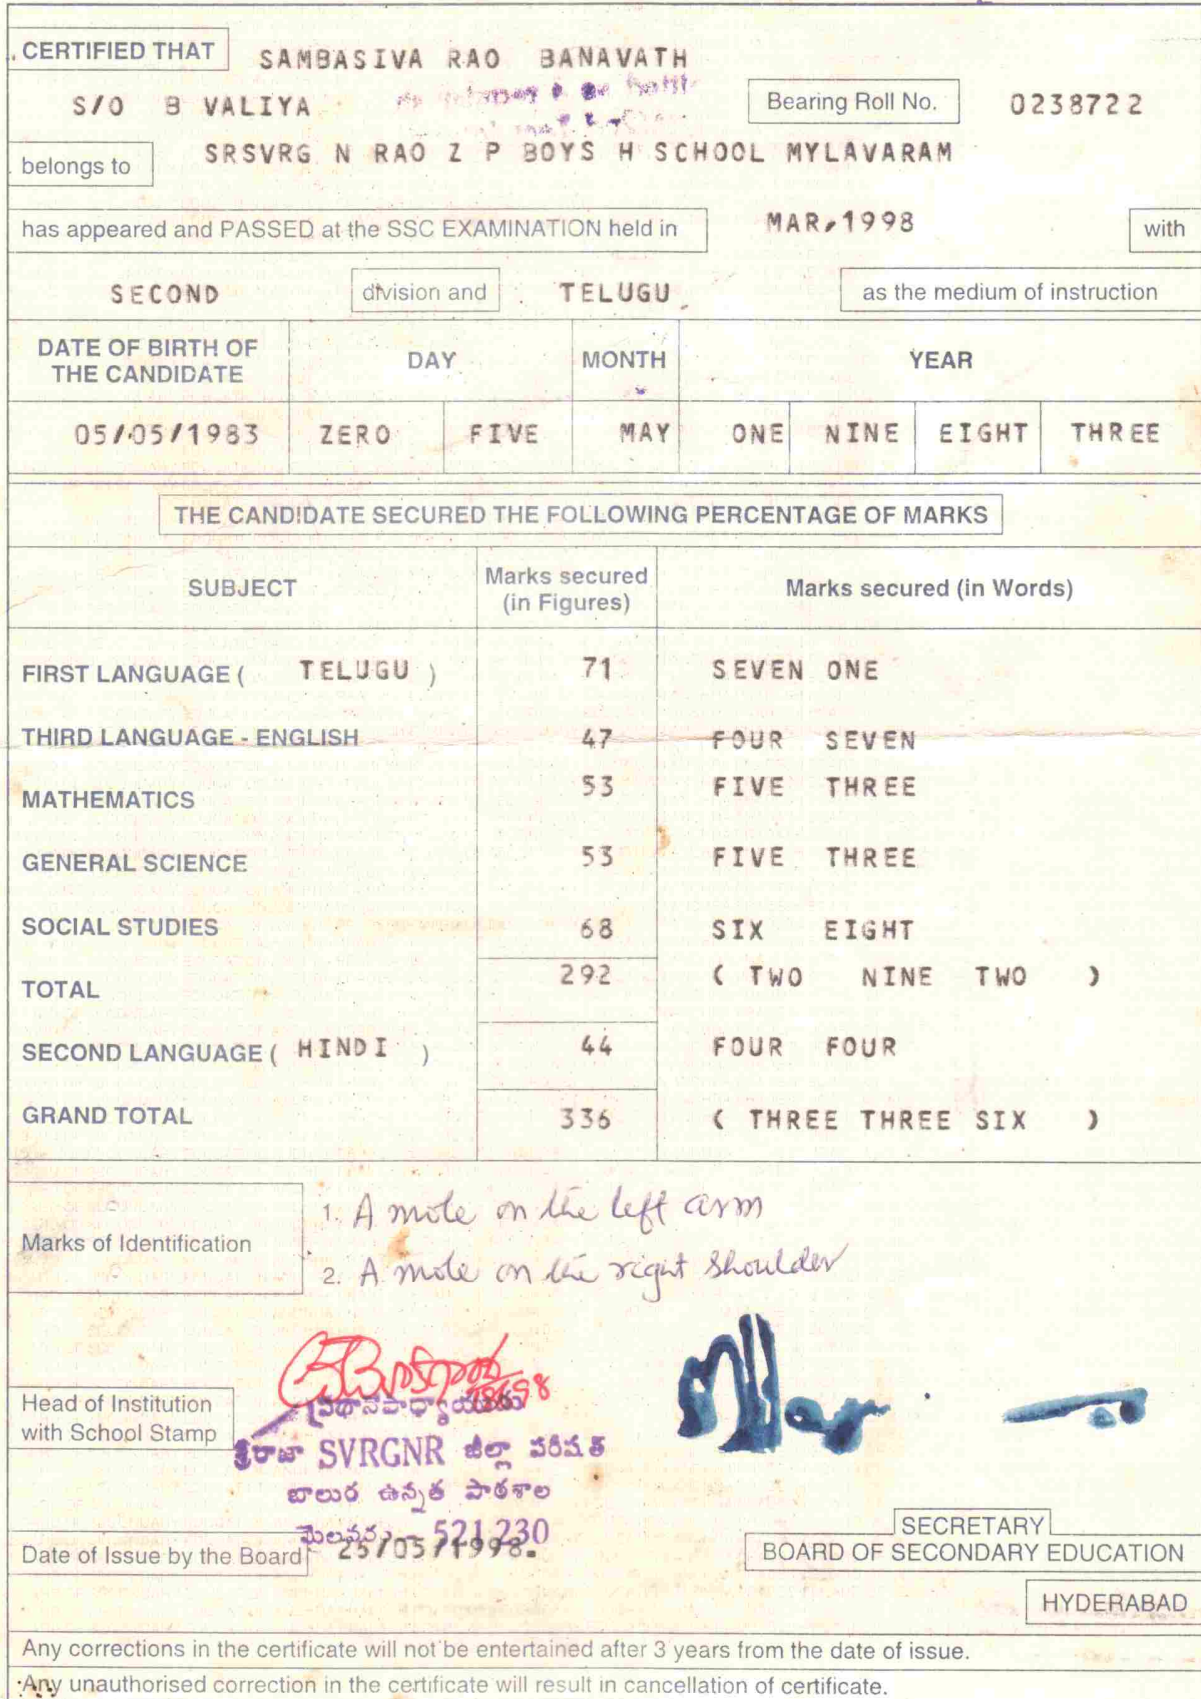 CERTIFIED THAT SAMBASIVA RAO BANAVATH
S/O B VALIYA Bearing Roll No. 0238722
belongs to SRSVRG N RAO Z P BOYS H SCHOOL MYLAVARAM
has appeared and PASSED at the SSC EXAMINATION held in MAR,1998 with
SECOND division and TELUGU as the medium of instruction
DATE OF BIRTH OF THE CANDIDATE DAY MONTH YEAR
05/05/1983 ZERO FIVE MAY ONE NINE EIGHT THREE
THE CANDIDATE SECURED THE FOLLOWING PERCENTAGE OF MARKS
SUBJECT Marks secured (in Figures) Marks secured (in Words)
FIRST LANGUAGE ( TELUGU ) 71 SEVEN ONE
THIRD LANGUAGE - ENGLISH 47 FOUR SEVEN
MATHEMATICS 53 FIVE THREE
GENERAL SCIENCE 53 FIVE THREE
SOCIAL STUDIES 68 SIX EIGHT
TOTAL 292 ( TWO NINE TWO )
SECOND LANGUAGE ( HINDI ) 44 FOUR FOUR
GRAND TOTAL 336 ( THREE THREE SIX )
Marks of Identification
1. A mole on the left arm
2. A mole on the right shoulder
Head of Institution
with School Stamp
ప్రధానోపాధ్యాయుడు
శ్రీరాజా SVRGNR జిల్లా పరిషత్
బాలుర ఉన్నత పాఠశాల
521 230
Date of Issue by the Board 25/05/1998.
SECRETARY
BOARD OF SECONDARY EDUCATION
HYDERABAD
Any corrections in the certificate will not be entertained after 3 years from the date of issue.
Any unauthorised correction in the certificate will result in cancellation of certificate.